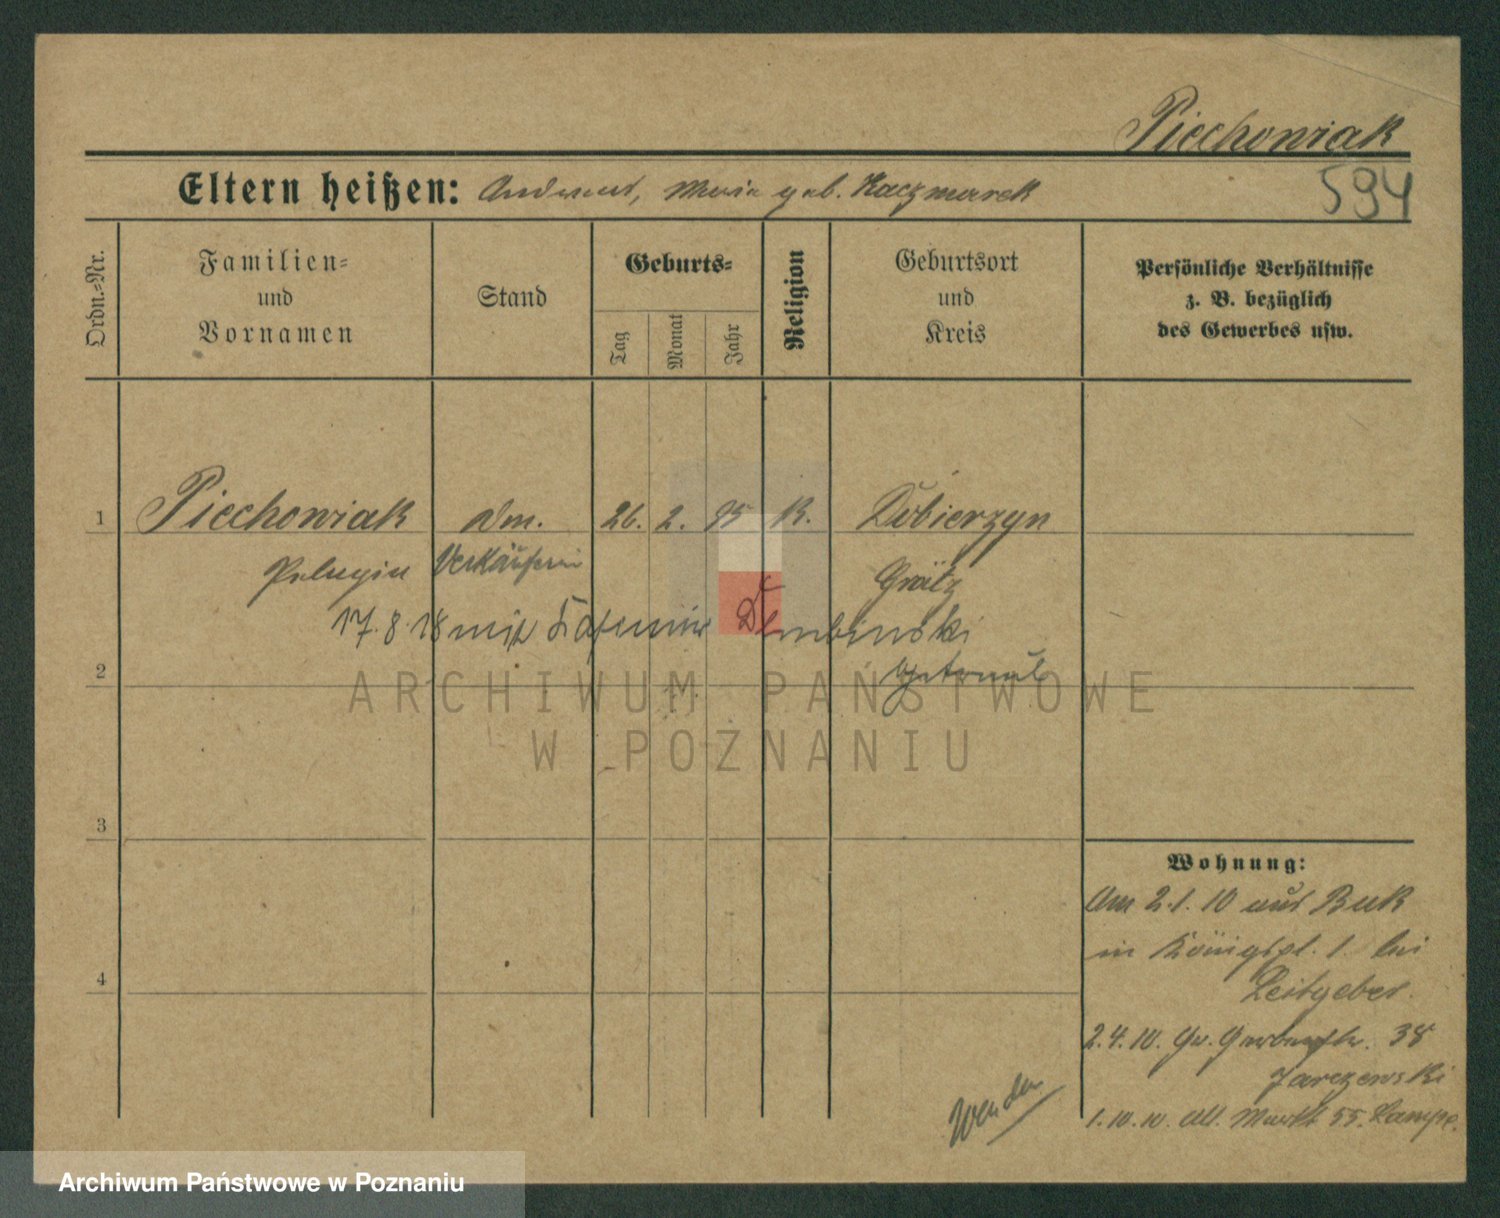 Piechowiak
594
Eltern heißen: Andreas, Maria geb. Kaczmarek
Ordn.-Nr.
Familien-
und
Vornamen
Stand
Geburts-
Tag
Monat
Jahr
Religion
Geburtsort
und
Kreis
Persönliche Verhältnisse
z. B. bezüglich
des Gewerbes usw.
1 Piechowiak 26. 2. 95 K. Dobierzyn
Pelagia Verkäuferin Grätz
17.8.18 mit Kasimir Dembinski
getraut
2
3
4
Wohnung:
Am 2.1.10 aus Buk
in Königspl. 1 bei
Leitgeber.
2.4.10. Gr. Gerberstr. 38
Jarczewski
1.10.10. Alt. Markt 55. Kampe.
Wenden
ARCHIWUM PAŃSTWOWE
W POZNANIU
Archiwum Państwowe w Poznaniu